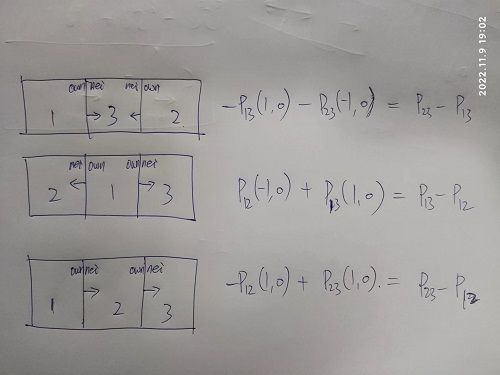 2022.11.9 19:02
own nei nei own
1 3 2 -P13(1,0) - P23(-1,0) = P23 - P13
nei own own nei
2 1 3 P12(-1,0) + P13(1,0) = P13 - P12
own nei own nei
1 2 3 -P12(1,0) + P23(1,0). = P23 - P12